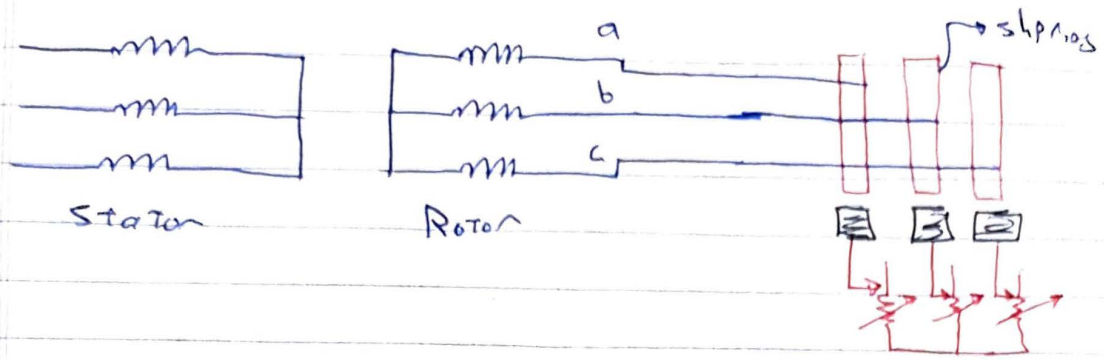 a
sliprings
b
c
Stator
Rotor